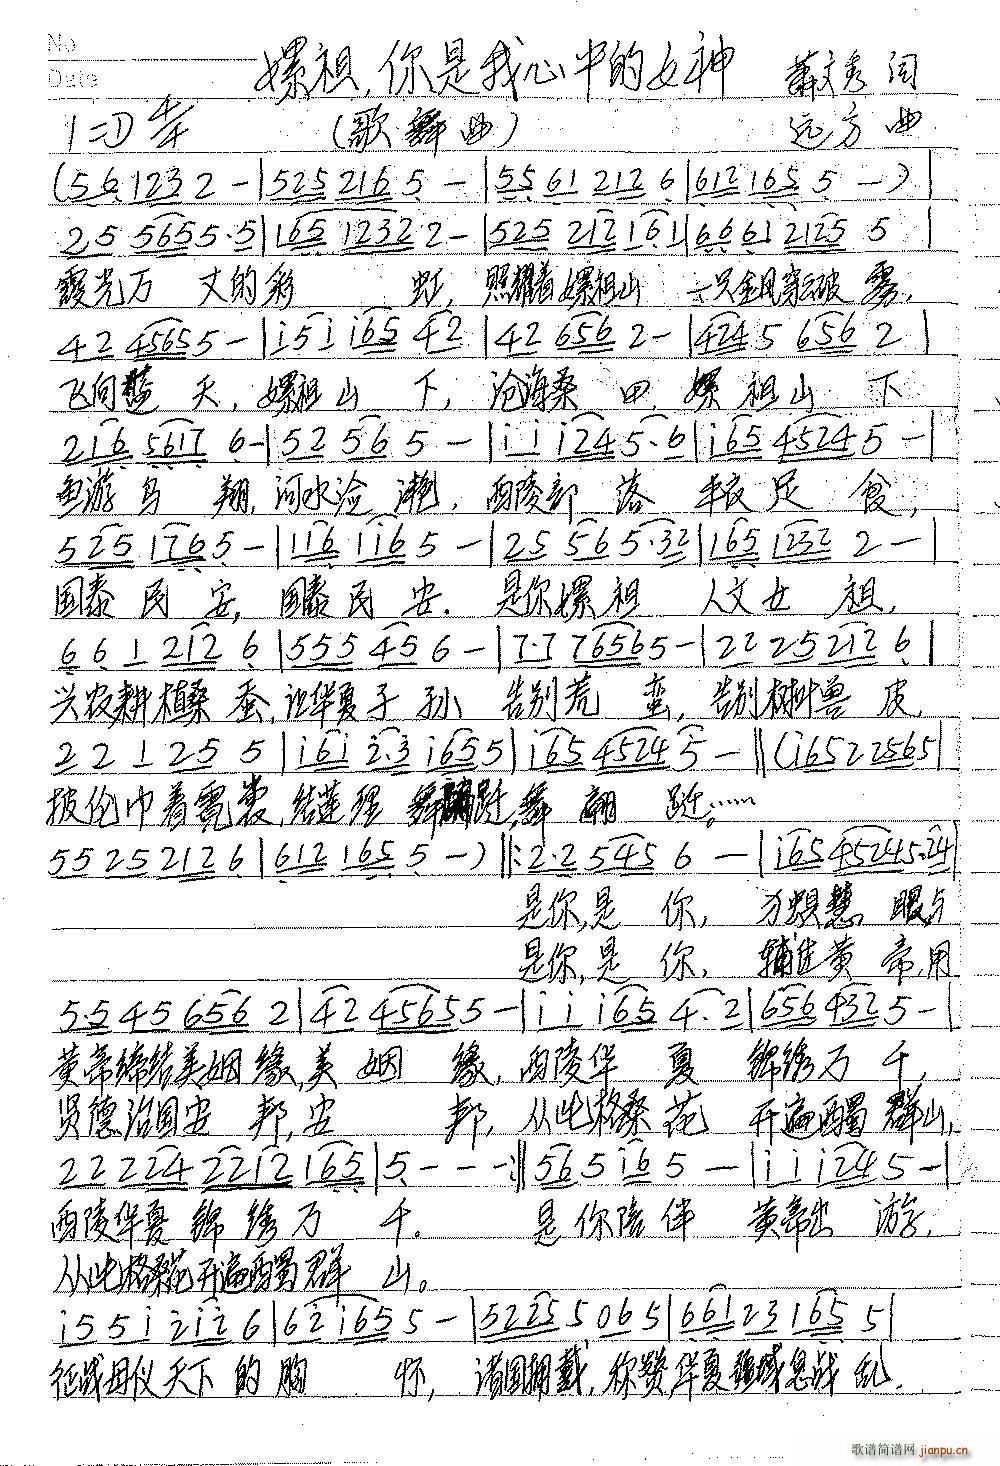 No
Date
嫘祖,你是我心中的女神 萧文秀 词
1=D 4/4 (歌舞曲) 远方 曲
(5 6 1 2 3 2 - | 5 2 5 2 1 6 5 - | 5 5 6 1 2 1 2 6 | 6 1 2 1 6 5 5 - ) |
2 5 5 6 5 5 · 5 | 1 6 5 1 2 3 2 2 - | 5 2 5 2 1 2 1 6 1 | 6 6 6 1 2 1 2 5 5 |
霞光万 丈的彩 虹, 照耀着嫘祖山 一只金凤穿破 雾,
4 2 4 5 6 5 5 - | i 5 i i 6 5 4 2 | 4 2 6 5 6 2 - | 4 2 4 5 6 5 6 2 |
飞向蓝 天, 嫘祖山 下, 沧海桑 田, 嫘祖山 下
2 1 6 5 6 1 7 6 - | 5 2 5 6 5 - | i i i 2 4 5 · 6 | i 6 5 4 5 2 4 5 - |
鱼游鸟 翔, 河水沧 滟, 西陵部 落 丰衣足 食,
5 2 5 1 7 6 5 - | 1 1 6 1 1 6 5 - | 2 5 5 6 5 · 3 2 | 1 6 5 1 2 3 2 2 - |
国泰民 安, 国泰民 安. 是你嫘祖 人文女 祖,
6 6 1 2 1 2 6 | 5 5 5 4 5 6 - | 7 · 7 7 6 5 6 5 - | 2 2 2 5 2 1 2 6 |
兴农耕植桑 蚕, 让华夏子 孙 告别荒 蛮, 告别树叶兽 皮,
2 2 1 2 5 5 | i 6 i 2 · 3 i 6 5 5 | i 6 5 4 5 2 4 5 - ‖ (i 6 5 2 2 5 6 5 |
披纶巾着霓裳, 结莲理 舞翩跹, 舞 翩 跹……
5 5 2 5 2 1 2 6 | 6 1 2 1 6 5 5 - ) ‖: 2 · 2 5 4 5 6 - | i 6 5 4 5 2 4 5 · 2 4 |
是你,是 你, 慧 眼与
是你,是 你, 辅佐黄 帝,用
5 · 5 4 5 6 5 6 2 | 4 2 4 5 6 5 5 - | i i i 6 5 4 · 2 | 6 5 6 4 3 2 5 - |
黄帝缔结美姻缘,美 姻 缘, 西陵华 夏 锦绣万 千,
贤德治国安 邦,安 邦, 从此格桑花 开遍西蜀 群山,
2 2 2 2 4 2 2 1 2 1 6 5 | 5 - - - :‖ 5 6 5 i 6 5 - | i i i 2 4 5 - |
西陵华夏 锦 绣万 千。 是你陪伴 黄帝出 游,
从此格桑花开遍西蜀群 山。
i 5 5 i 2 i 2 6 | 6 2 i 6 5 5 - | 5 2 2 5 5 0 6 5 | 6 6 1 2 3 1 6 5 5 |
征战母仪天下 的 胸 怀, 诸国拥戴,你赞,华夏疆域息战 乱.
歌谱简谱网 jianpu.cn